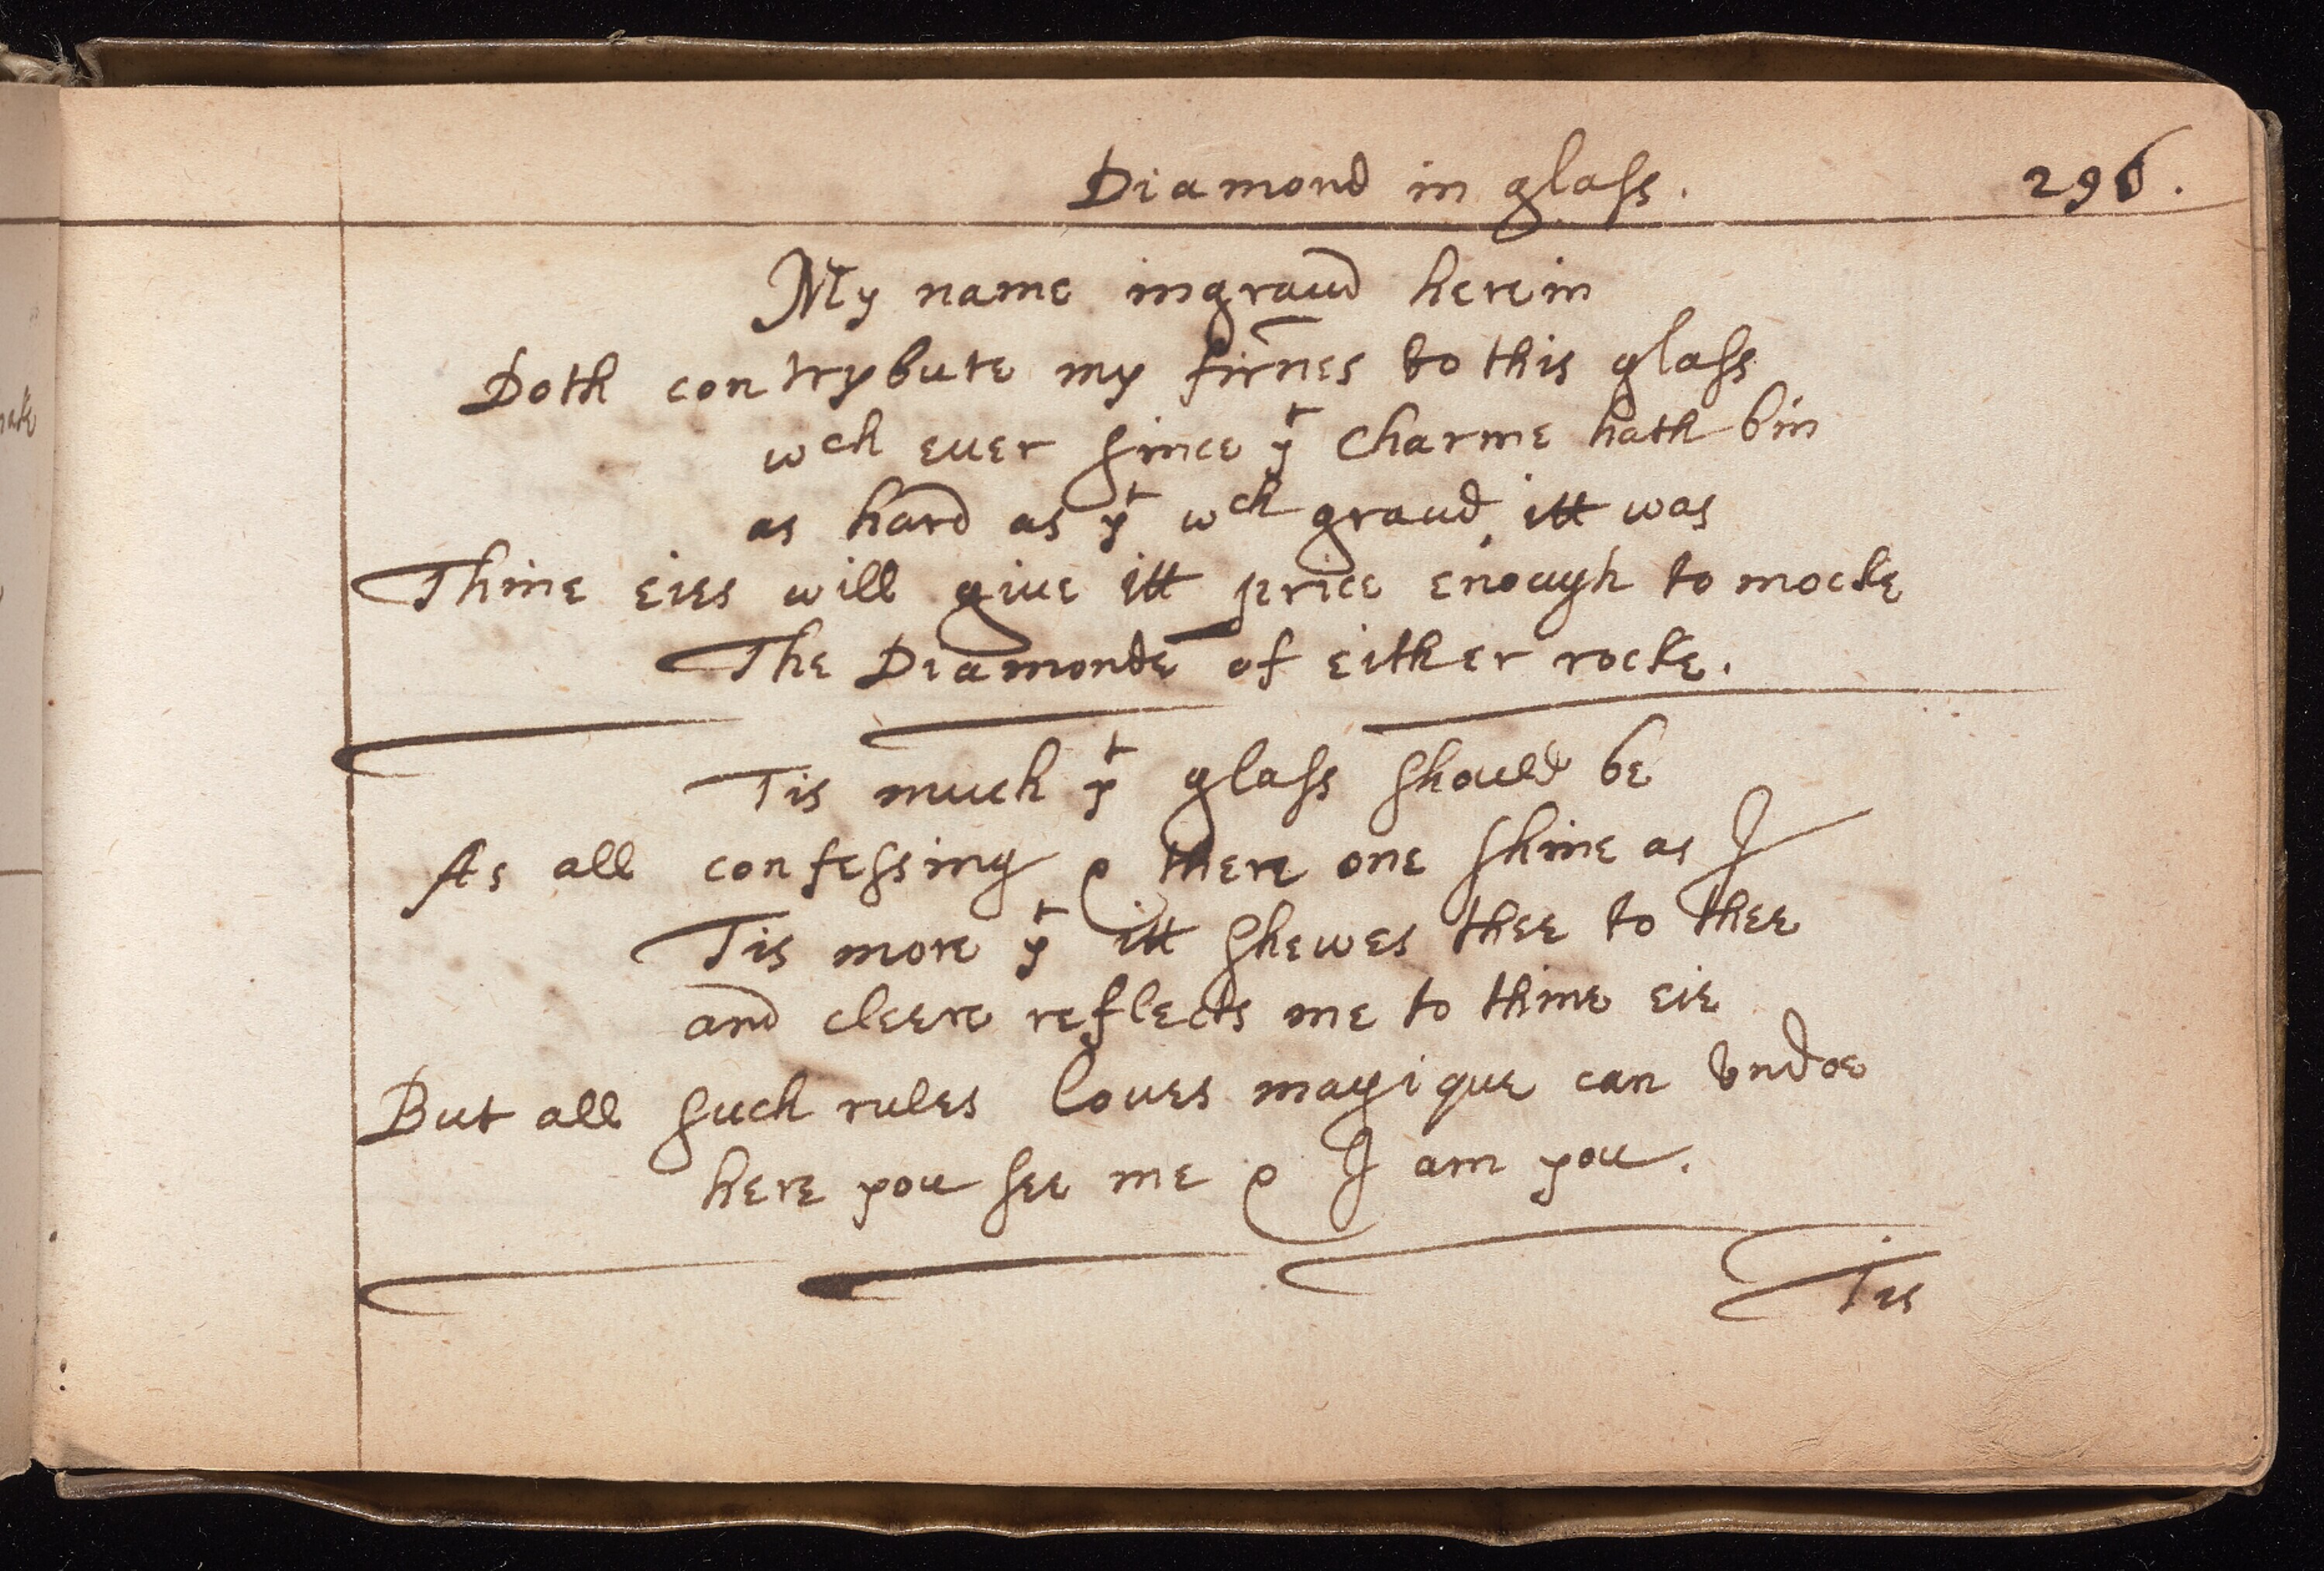 Diamond in glass. 296.
My name ingraud herein
Doth contrybute my fir̄nes to this glass
wch euer since yt Charme hath bin
as hard as yt wch graud itt was
Thine eies will giue itt price enough to mocke
The Diamonde of either rocke.
Tis much yt glass should be
As all confessing & there one shine as I
Tis more yt itt shewes thee to thee
and cleere reflects me to thine eie
But all such rules loues magique can vndoe
here you see me & I am you.
Tis